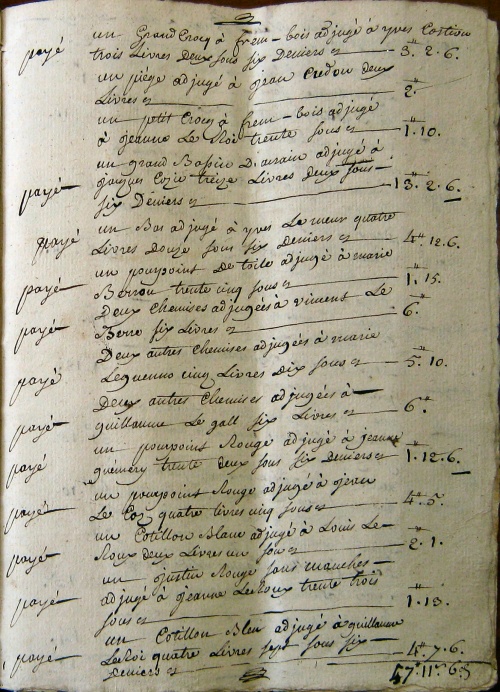 un Grand Crocq à frem-bois adjugé à yves Costiou
payé trois Livres Deux sous six Deniers cy 3.tt 2. 6.
un piège adjugé à jean Credou deux
Livres cy 2.tt
un petit Crocq à frem-bois adjugé
à jeanne Le Roi trente sous cy 1.tt 10.
un grand Bassin D'airain adjugé à
payé jacques Cozic treize Livres deux sous
six Deniers cy 13.tt 2. 6.
un Bas adjugé à yves Le meur quatre
payé Livres Douze sous six deniers cy 4.tt 12. 6.
un pourpoint De toile adjugé à marie
payé Berrou trente cinq sous cy 1.tt 15.
Deux Chemises adjugées à vincent Le
payé Berre six Livres cy 6.tt
Deux autres Chemises adjugées à marie
payé Lequenno cinq Livres Dix sous cy 5.tt 10.
Deux autres Chemises adjugées à
payé guillaume Le gall six Livres cy 6.tt
un pourpoint Rouge adjugé à jeanne
payé quemery trente deux sous six deniers cy 1.tt 12. 6.
un pourpoint Rouge adjugé à jean
payé Le Coz quatre livres cinq sous cy 4.tt 5.
un Cotillon Blanc adjugé à Louis Le
payé Roux deux Livres un sou cy 2.tt 1.
un justin Rouge sans manches
payé adjugé à jeanne Le Roux trente trois
sous cy 1.tt 13.
un Cotillon Bleu adjugé à guillaume
payé Le Roi quatre Livres sept sous six
Deniers cy 4.tt 7. 6.
57.tt 11.s 6.